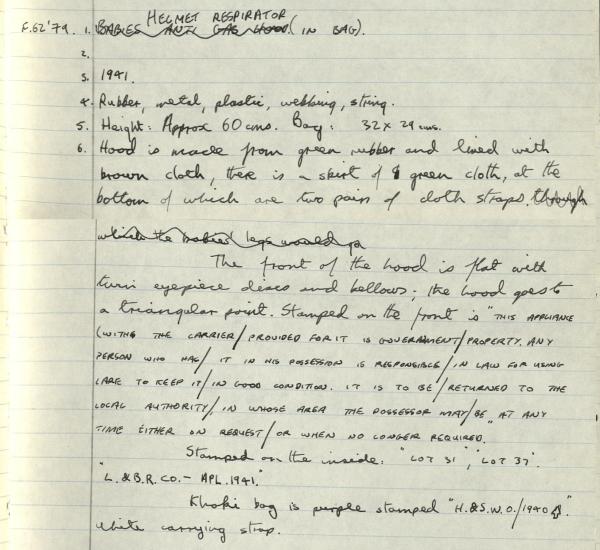 HELMET RESPIRATOR
F.62'79. 1. BABIES ANTI GAS HOOD (IN BAG).
2.
3. 1941.
4. Rubber, metal, plastic, webbing, string.
5. Height: Approx 60 cms. Bag: 32 x 29 cms.
6. Hood is made from green rubber and lined with
brown cloth, there is a skirt of green cloth, at the
bottom of which are two pairs of cloth straps. through
which the babies' legs would go
The front of the hood is flat with
twin eyepiece discs and bellows; the hood goes to
a triangular point. Stamped on the front is "THIS APPLIANCE
(WITH THE CARRIER/PROVIDED FOR IT IS GOVERNMENT/PROPERTY. ANY
PERSON WHO HAS/IT IN HIS POSSESSION IS RESPONSIBLE/IN LAW FOR USING
CARE TO KEEP IT/IN GOOD CONDITION. IT IS TO BE/RETURNED TO THE
LOCAL AUTHORITY/IN WHOSE AREA THE POSSESSOR MAY/BE" AT ANY
TIME EITHER ON REQUEST/OR WHEN NO LONGER REQUIRED.
Stamped on the inside: "LOT 31", "LOT 37".
"L. & B.R. CO. - APL. 1941."
Khaki bag is purple stamped "H.&S.W.O./1940 ".
white carrying strap.